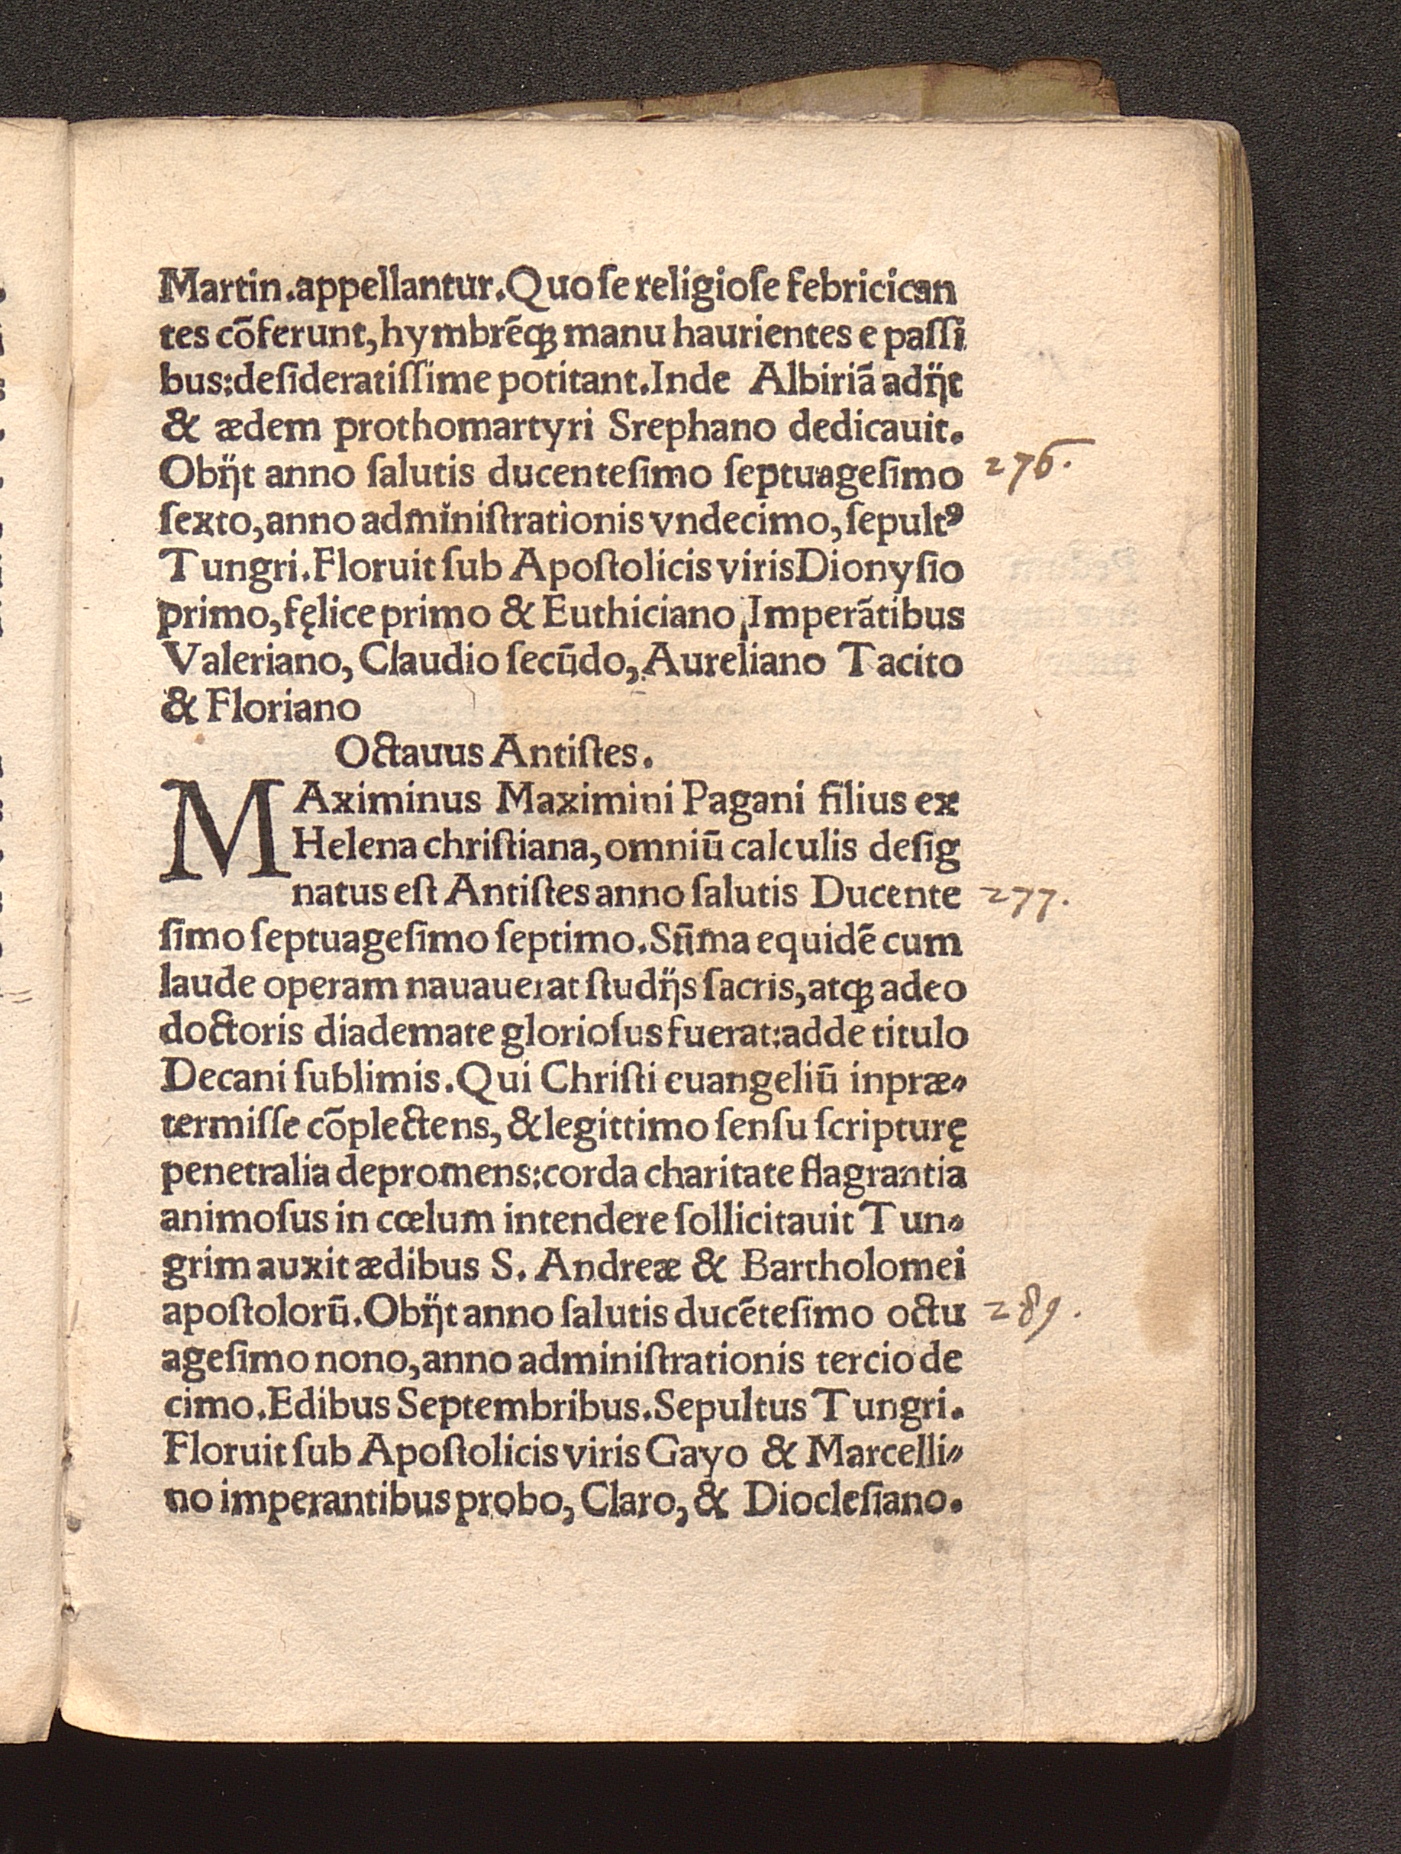 Martin.appellantur.Quo ſe religioſe febricican
tes cõferunt,hymbrẽq̃ manu haurientes e paſſi
bus:deſideratiſſime potitant.Inde Albiriã adijt
& ædem prothomartyri Srephano dedicauit.
Obijt anno ſalutis ducenteſimo ſeptuageſimo 276.
ſexto,anno adminiſtrationis vndecimo,ſepultꝰ
Tungri.Floruit ſub Apoſtolicis viris Dionyſio
primo,fęlice primo & Euthiciano Imperãtibus
Valeriano, Claudio ſecũdo, Aureliano Tacito
& Floriano
Octauus Antiſtes.
MAximinus Maximini Pagani filius ex
Helena chriſtiana, omniũ calculis deſig
natus eſt Antiſtes anno ſalutis Ducente 277.
ſimo ſeptuageſimo ſeptimo.Sũma equidẽ cum
laude operam nauauerat ſtudijs ſacris,atq̃ adeo
doctoris diademate glorioſus fuerat:adde titulo
Decani ſublimis.Qui Chriſti euangeliũ inpræ⸗
termiſſe cõplectens, & legittimo ſenſu ſcripturę
penetralia depromens:corda charitate flagrantia
animoſus in cœlum intendere ſollicitauit Tun⸗
grim auxit ædibus S. Andreæ & Bartholomei
apoſtolorũ.Obijt anno ſalutis ducẽteſimo octu 289.
ageſimo nono,anno adminiſtrationis tercio de
cimo.Edibus Septembribus.Sepultus Tungri.
Floruit ſub Apoſtolicis viris Gayo & Marcelli⸗
no imperantibus probo, Claro, & Diocleſiano.